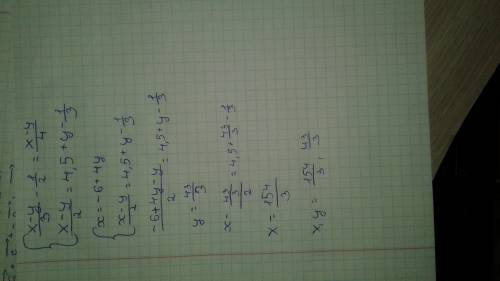 { \frac{x-y}{3} - \frac{1}{2} = \frac{x-y}{4}
\frac{x-y}{2} = 4,5+y-\frac{1}{3}
{ x=-6+4y
\frac{x-y}{2} = 4,5+y-\frac{1}{3}
\frac{-6+4y-y}{2} = 4,5+y-\frac{1}{3}
y = \frac{43}{3}
\frac{x-\frac{43}{3}}{2} = 4,5+\frac{43}{3}-\frac{1}{3}
x = \frac{154}{3}
x,y = \frac{154}{3}, \frac{43}{3}